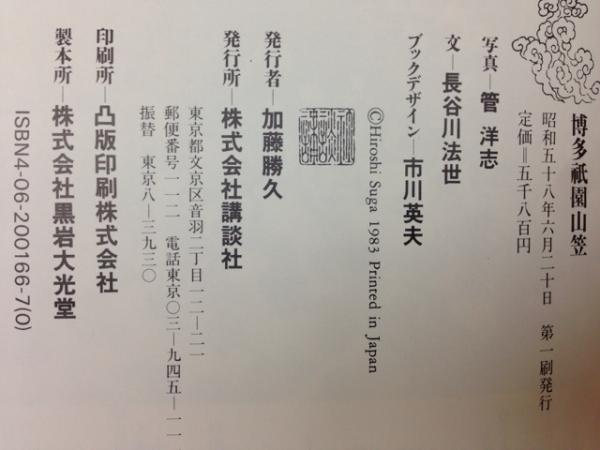 博多祇園山笠
昭和五十八年六月二十日 第一刷発行
定価=五千八百円
写真―管 洋志
文―長谷川法世
ブックデザイン―市川英夫
©Hiroshi Suga 1983 Printed in Japan
発行者―加藤勝久
発行所―株式会社講談社
東京都文京区音羽二丁目一二―二一
郵便番号一一二 電話東京〇三―九四五―一一
振替 東京八―三九三〇
印刷所―凸版印刷株式会社
製本所―株式会社黒岩大光堂
ISBN4-06-200166-7(0)